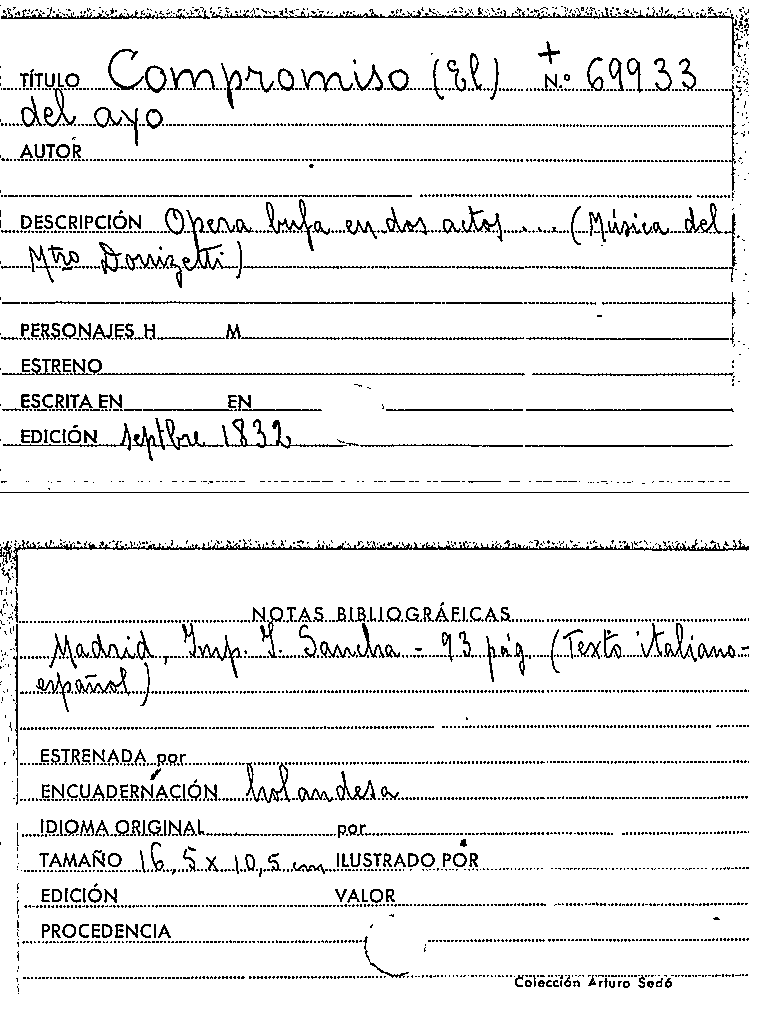 TÍTULO Compromiso (El) + N.º 69933
del ayo
AUTOR
DESCRIPCIÓN Opera bufa en dos actos ... (Música del
Mtro Donizetti)
PERSONAJES H M
ESTRENO
ESCRITA EN EN
EDICIÓN septbre 1832
NOTAS BIBLIOGRÁFICAS
Madrid, Imp. I. Sancha - 93 pág. (Texto italiano-
español)
ESTRENADA por
ENCUADERNACIÓN holandesa
IDIOMA ORIGINAL por
TAMAÑO 16,5 x 10,5 cm ILUSTRADO POR
EDICIÓN VALOR
PROCEDENCIA
Colección Arturo Sedó